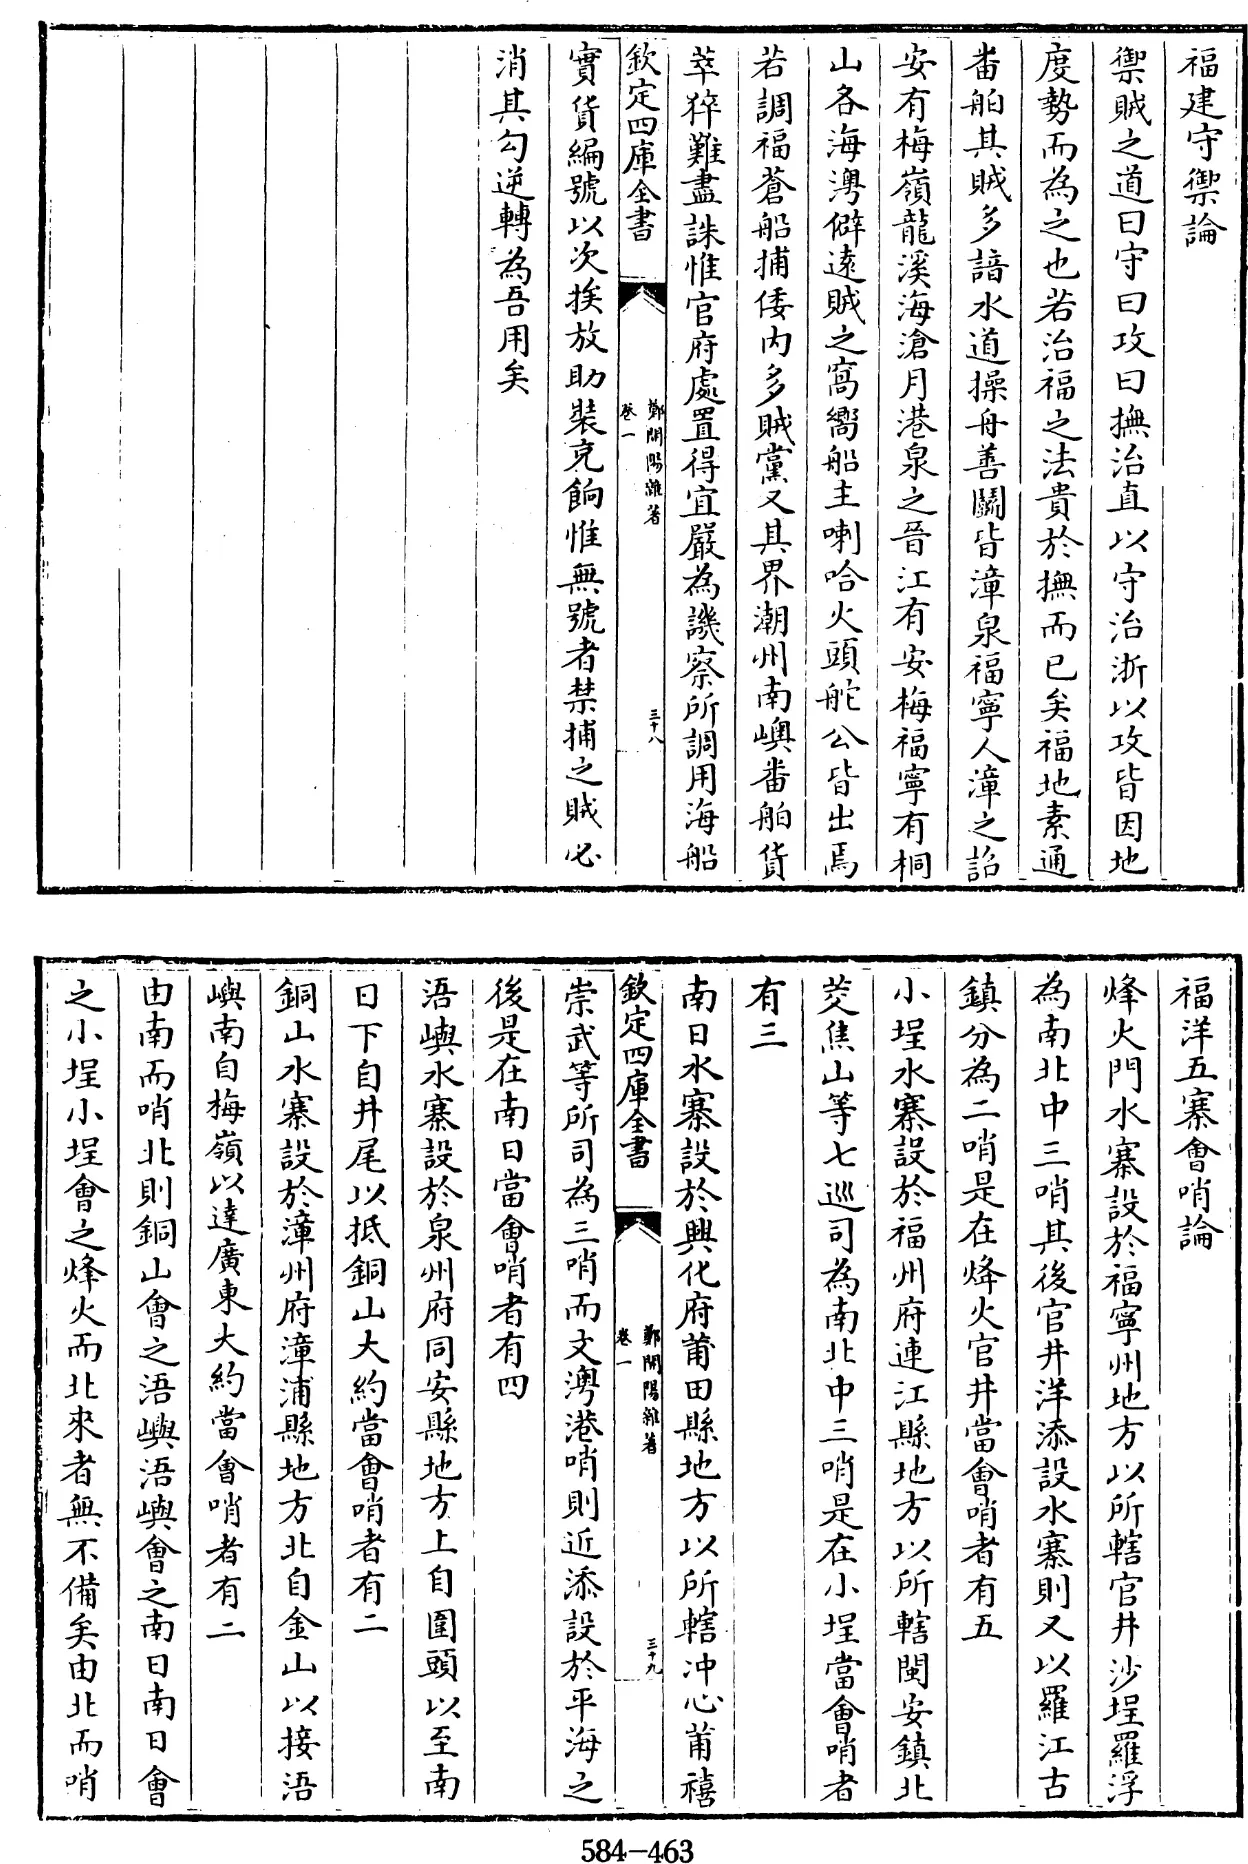 福建守禦論
禦賊之道曰守曰攻曰撫治直以守治浙以攻皆因地
度勢而為之也若治福之法貴於撫而已矣福地素通
番舶其賊多諳水道操舟善鬭皆漳泉福寧人漳之詔
安有梅嶺龍溪海滄月港泉之晉江有安梅福寧有桐
山各海澳僻遠賊之窩嚮船主喇哈火頭舵公皆出焉
若調福蒼船捕倭内多賊黨又其界潮州南嶼番舶貨
萃猝難盡誅惟官府處置得宜嚴為譏察所調用海船
欽定四庫全書
鄭開陽雜著
卷一
三十八
實貨編號以次挨放助裝充餉惟無號者禁捕之賊必
消其勾逆轉為吾用矣
福洋五寨會哨論
烽火門水寨設於福寧州地方以所轄官井沙埕羅浮
為南北中三哨其後官井洋添設水寨則又以羅江古
鎮分為二哨是在烽火官井當會哨者有五
小埕水寨設於福州府連江縣地方以所轄閩安鎮北
茭焦山等七巡司為南北中三哨是在小埕當會哨者
有三
南日水寨設於興化府莆田縣地方以所轄冲心莆禧
欽定四庫全書
鄭開陽雜著
卷一
三十九
崇武等所司為三哨而文澳港哨則近添設於平海之
後是在南日當會哨者有四
浯嶼水寨設於泉州府同安縣地方上自圍頭以至南
日下自井尾以抵銅山大約當會哨者有二
銅山水寨設於漳州府漳浦縣地方北自金山以接浯
嶼南自梅嶺以達廣東大約當會哨者有二
由南而哨北則銅山會之浯嶼浯嶼會之南日南日會
之小埕小埕會之烽火而北來者無不備矣由北而哨
584-463